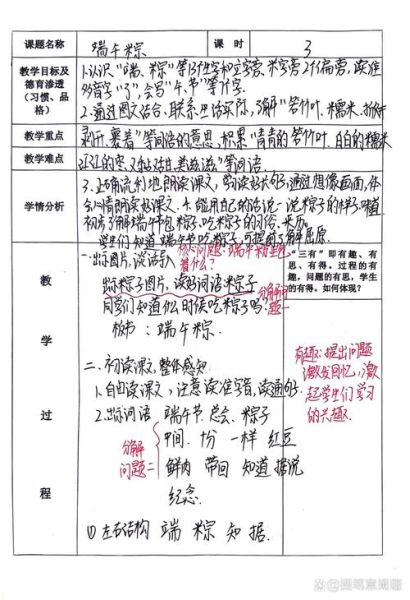 课题名称 端午粽 课时 3
教学目标及德育渗透（习惯、品格）
1.认识“端、粽”等13个生字和立字旁、米字旁2个偏旁，读准
多音字“了”，会写“午、节”等个字。
2.通过图文结合，联系生活实际，了解“箬竹叶、糯米、
教学重点
剥开、裹着”等词语的意思，积累“青青的箬竹叶、白白的糯米
教学难点
等词语
学情分析
3.正确流利地朗读课文，读好长句，通过想像画面，体
会心情朗读好课文。4.能用自己的话说一说粽子的样子、味道
初步了解端午节包粽子、吃粽子的习俗、来历。
学生们知道端午节吃粽子，可提前了解屈原
教学过程
一.出示图片，谈话导入
核心问题：端午粽里包着什么？
出示粽子图片，读好词语“粽子”
同学们知道什么时候吃粽子吗？
分解问题一
板书：端午粽.
“三有”即有趣、有思、有得。过程的有趣，问题的有思，学生的有得。如何体现？
二.初读课文，整体感知
1.自由读课文，注意读准字音，读通句子.
有趣：提出问题
激发回忆，激
起学生们学习
的兴趣.
2.出示词语 端午节 总会 粽子
中间 十分 一样 红豆
分解问题二
鲜肉 带回 知道 据说
纪念.
(1)左右结构 端 粽 知 据.